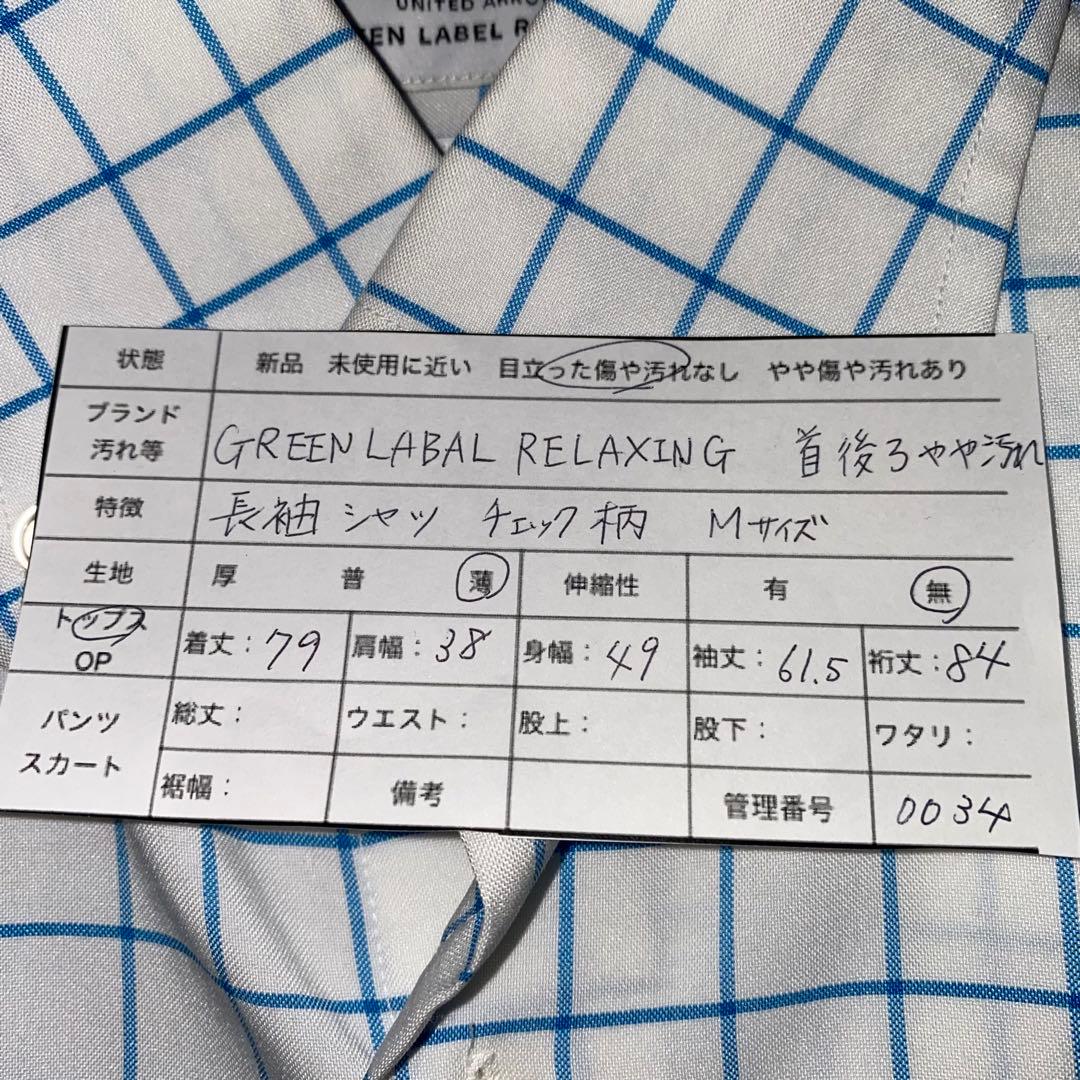 UNITED ARRO
EEN LABEL R
状態 新品 未使用に近い 目立った傷や汚れなし やや傷や汚れあり
ブランド
汚れ等 GREEN LABAL RELAXING 首後ろやや汚れ
特徴 長袖シャツ チェック柄 Mサイズ
生地 厚 普 薄 伸縮性 有 無
トップス
OP 着丈:79 肩幅:38 身幅:49 袖丈:61.5 裄丈:84
パンツ
スカート 総丈: ウエスト: 股上: 股下: ワタリ:
裾幅: 備考 管理番号 0034